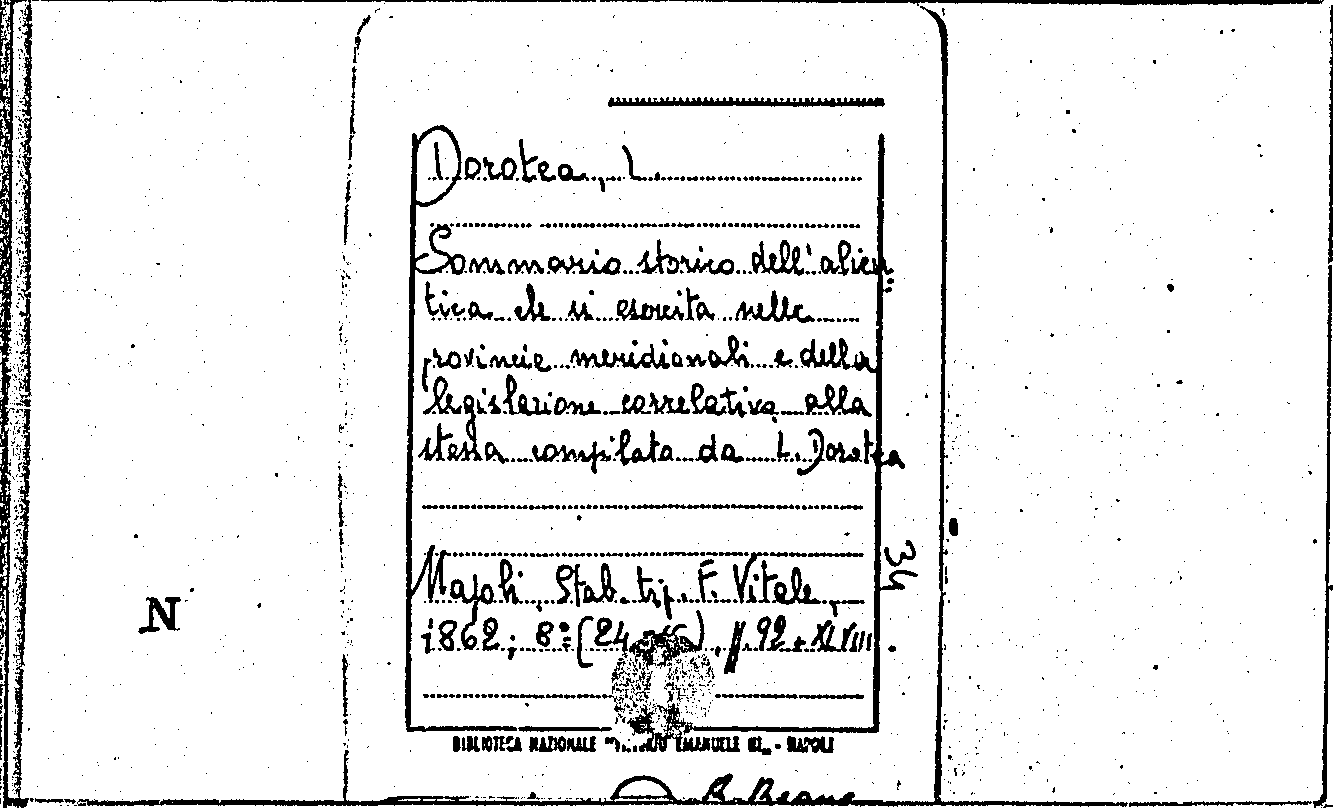 Dorotea, L.
Sommario storico dell'alieu
tica che si esercita nelle
provincie meridionali e della
legislazione correlativa alla
stessa compilata da L. Dorotea
34
Napoli, Stab. tip. F. Vitale,
N
1862; 8° (24 ), pp. 92 + XLVIII.
BIBLIOTECA NAZIONALE "VITTORIO EMANUELE III" - NAPOLI